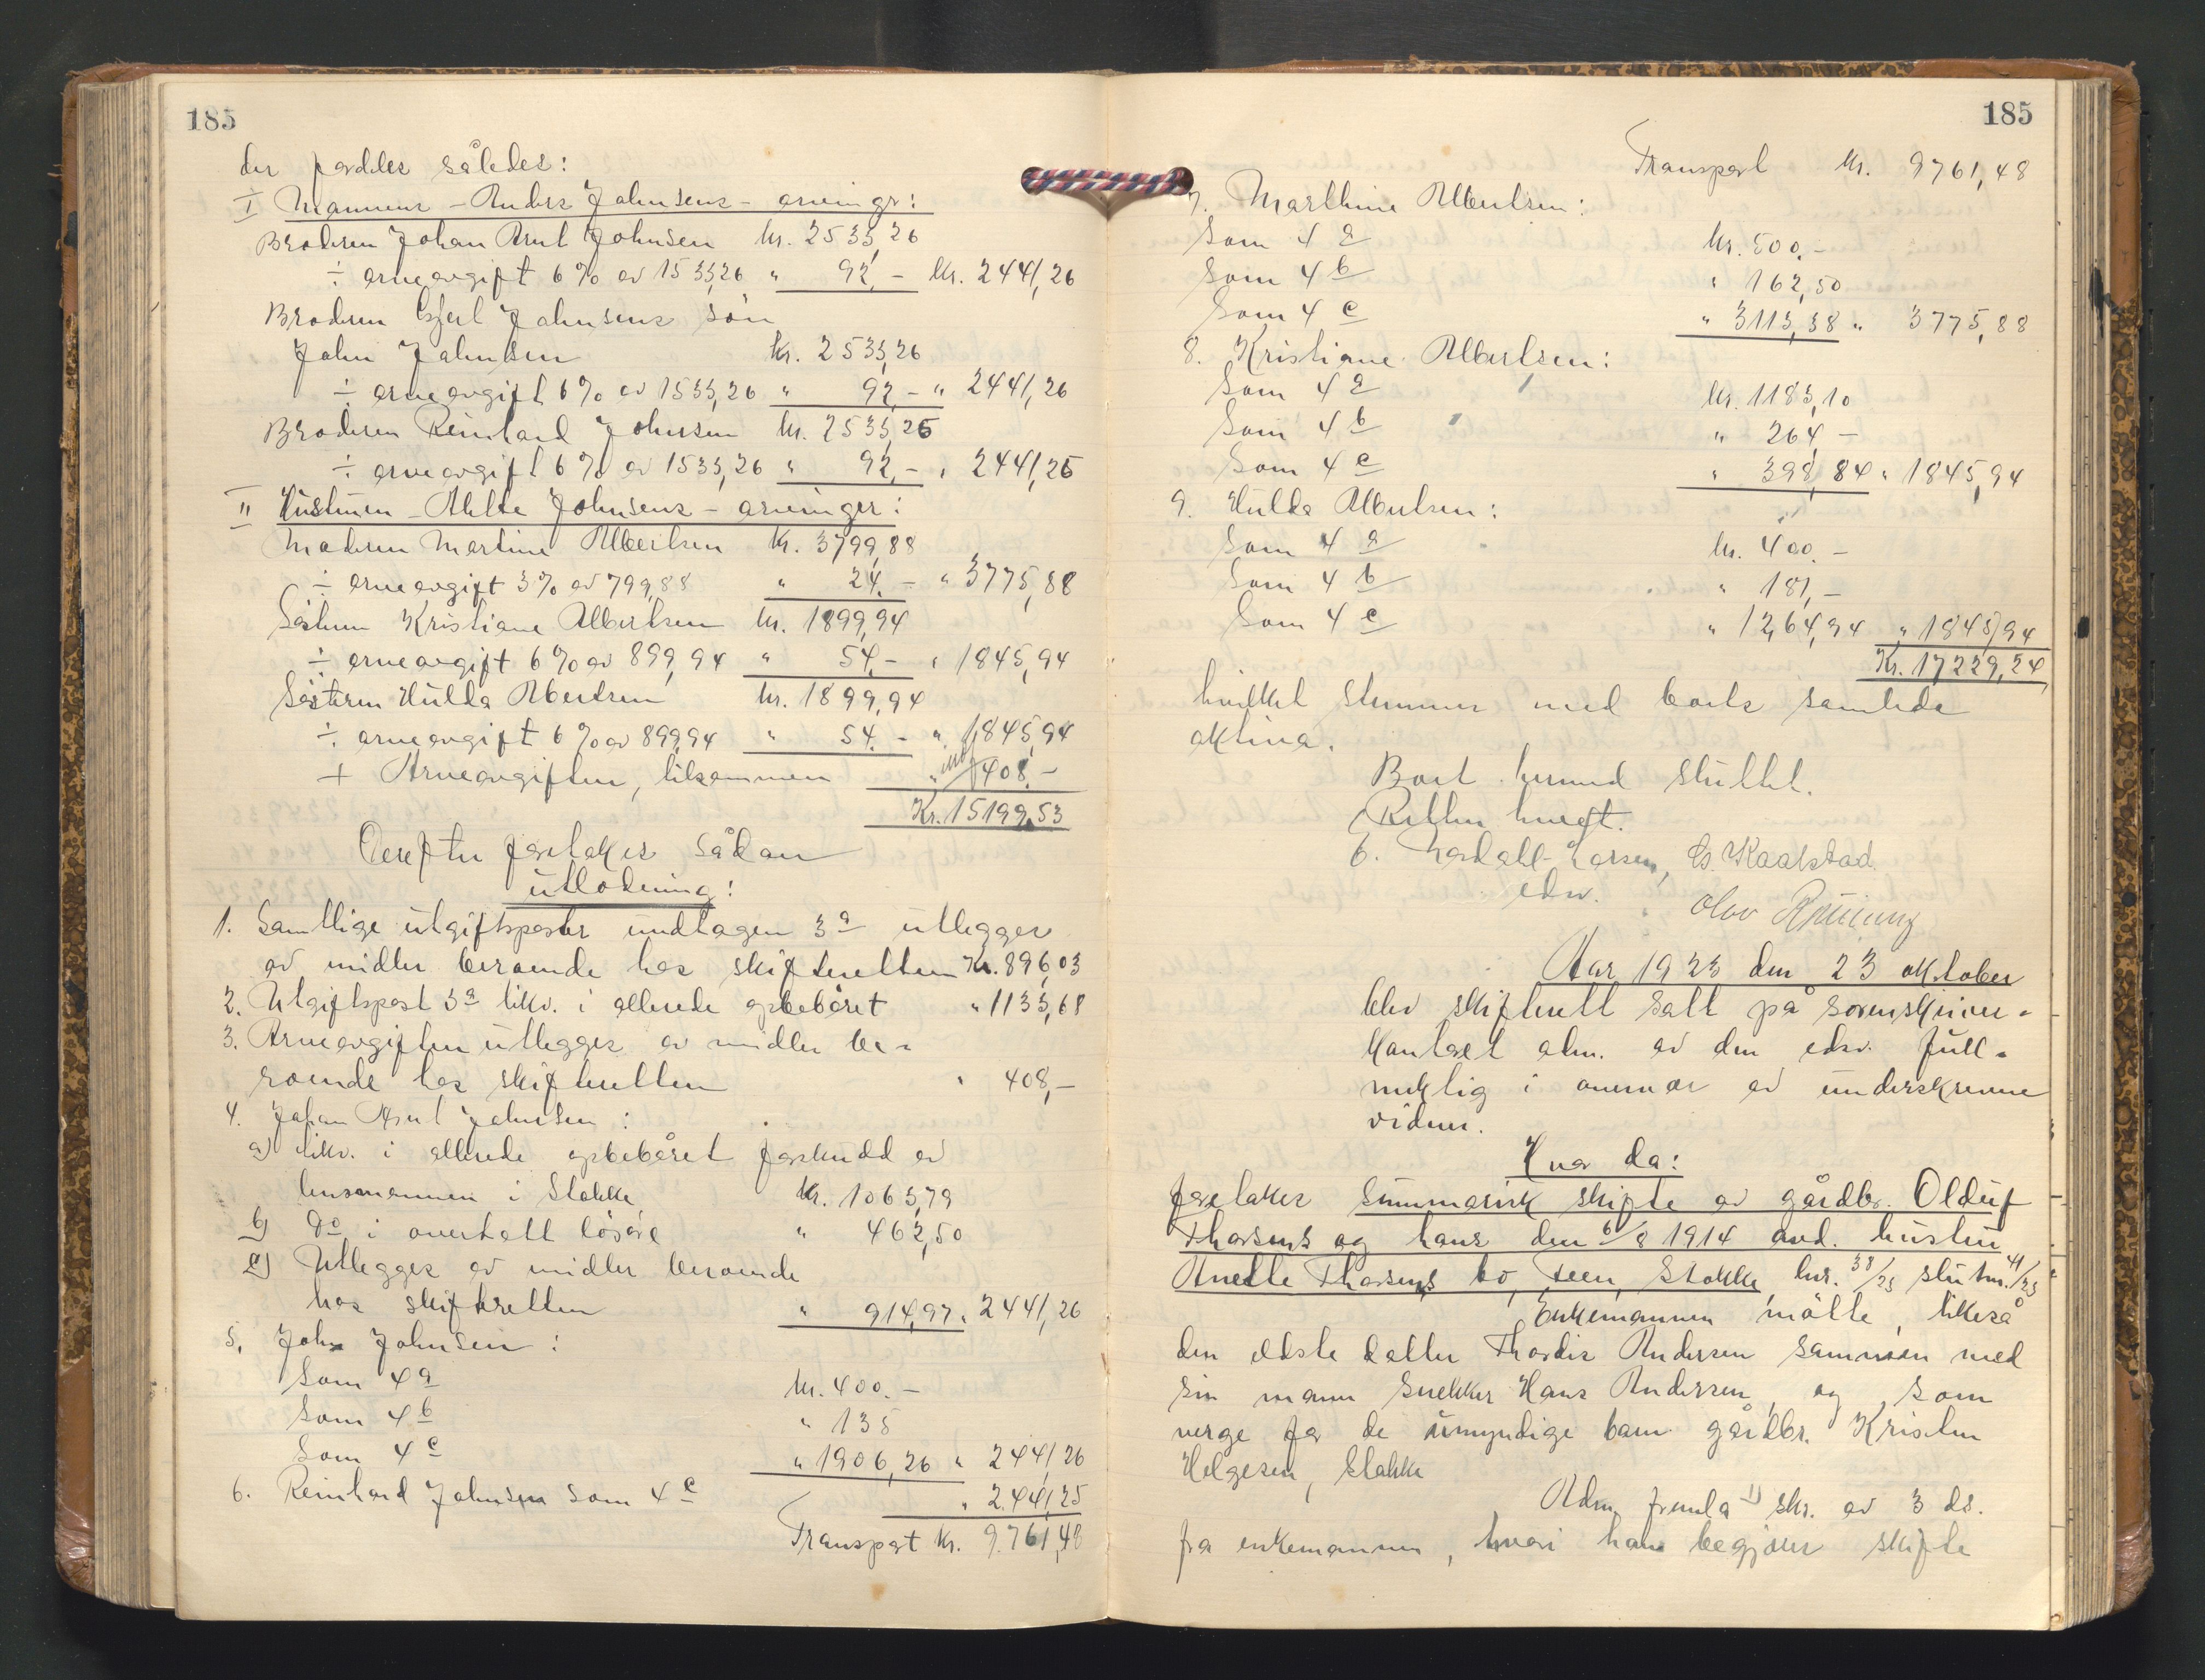 185
der fordeles således:
I Mannens - Anders Johnsens - arvinger:
Broderen Johan Arnt Johnsen kr. 2533,26
÷ arveavgift 6% av 1533,26 " 92,- kr. 2441,26
Broderen Johnsens søn
John Johnsen kr. 2533,26
÷ arveavgift 6% av 1533,26 " 92,- " 2441,26
Broderen Reinhard Johnsen kr. 2533,25
÷ arveavgift 6% av 1533,26 " 92,- " 2441,25
II Hustruen - Johnsens - arvinger:
Moderen Martine Albertsen kr. 3799,88
÷ arveavgift 3% av 799,88 " 24,- " 3775,88
Søstren Kristiane Albertsen kr. 1899,94
÷ arveavgift 6% av 899,94 " 54,- " 1845,94
Søsteren Hulda Albertsen kr. 1899,94
÷ arveavgift 6% av 899,94 " 54,- " 1845,94
+ Arveavgiften, tilsammen " 408,-
Kr. 15199,53
Derefter foretokes sådan
utlodning:
1. Samtlige utgiftsposter undtagen 3a utlegges
av midler beroende hos skifteretten Kr. 896,03
2. Utgiftspost 3a likv. i allerede opbebåret " 1133,68
3. Arveavgiften utlegges av midler be-
roende hos skifteretten " 408,-
4. Johan Arnt Johnsen:
a) likv. i allerede opbebåret forskudd av
lensmannen i Stokke kr. 1063,79
b) do i overtatt løsøre " 462,50
c) Utlegges av midler beroende
hos skifteretten " 914,97 " 2441,26
5. John Johnsen:
Som 4a kr. 400.-
Som 4b " 135
Som 4c " 1906,26 " 2441,26
6. Reinhard Johnsen som 4c " 2441,25
Transport kr. 9761,48
185
Transport kr. 9761,48
7. Marthine Albertsen:
Som 4a kr. 500.-
Som 4b " 162,50
Som 4c " 3113,38 " 3775,88
8. Kristiane Albertsen:
Som 4a kr. 1183,10
Som 4b " 264 -
Som 4c " 398,84 " 1845,94
9. Hulda Albertsen:
Som 4a kr. 400.-
Som 4b " 181,-
Som 4c " 1264,94 " 1845,94
Kr. 17229,24
hvilket stemmer med boets samlede
aktiva.
Boet hermed sluttet.
Retten hævet.
Kaalstad
edsv. Olav
Aar 1923 den 23 oktober
blev skifterett satt på sorenskriver-
kontoret adm. av den edsv. full-
mektig i overvær av underskrevne
vidner.
Hvor da:
foretokes summarisk skifte av gårdbr. Olduf
Thorsens og hans den 6/8 1914 avd. hustru
Anette Thorsens bo, Feen, Stokke bnr. 38/23 slutnr. 41/23
Enkemannen møtte, likeså
den eldste datter Thordis Andersen sammen med
sin mann snekker Hans Andersen, og som
verge for de umyndige barn gårdbr. Kristen
Helgesen, Stokke
Adm. fremla 1) skr. av 3 ds.
fra enkemannen, hvori han begjærer skifte